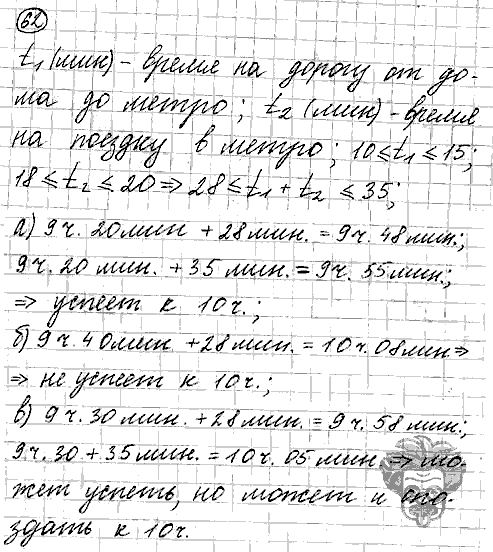 62
t₁ (мин) - время на дорогу от до-
ма до метро; t₂ (мин) - время
на поездку в метро; 10 ≤ t₁ ≤ 15;
18 ≤ t₂ ≤ 20 ⇒ 28 ≤ t₁ + t₂ ≤ 35;
а) 9 ч. 20 мин + 28 мин. = 9 ч. 48 мин.;
9 ч. 20 мин. + 35 мин. = 9 ч. 55 мин.;
⇒ успеет к 10 ч.;
б) 9 ч. 40 мин. + 28 мин. = 10 ч. 08 мин ⇒
⇒ не успеет к 10 ч.;
в) 9 ч. 30 мин. + 28 мин. = 9 ч. 58 мин.;
9 ч. 30 + 35 мин. = 10 ч. 05 мин. ⇒ мо-
жет успеть, но может и опо-
здать к 10 ч.